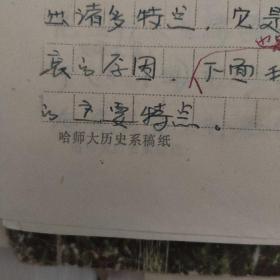 诸多特点，它是
衰的原因，下面
的主要特点。
哈师大历史系稿纸